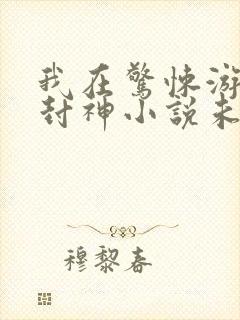 我在驚悚游
封神小說未
穆黎春